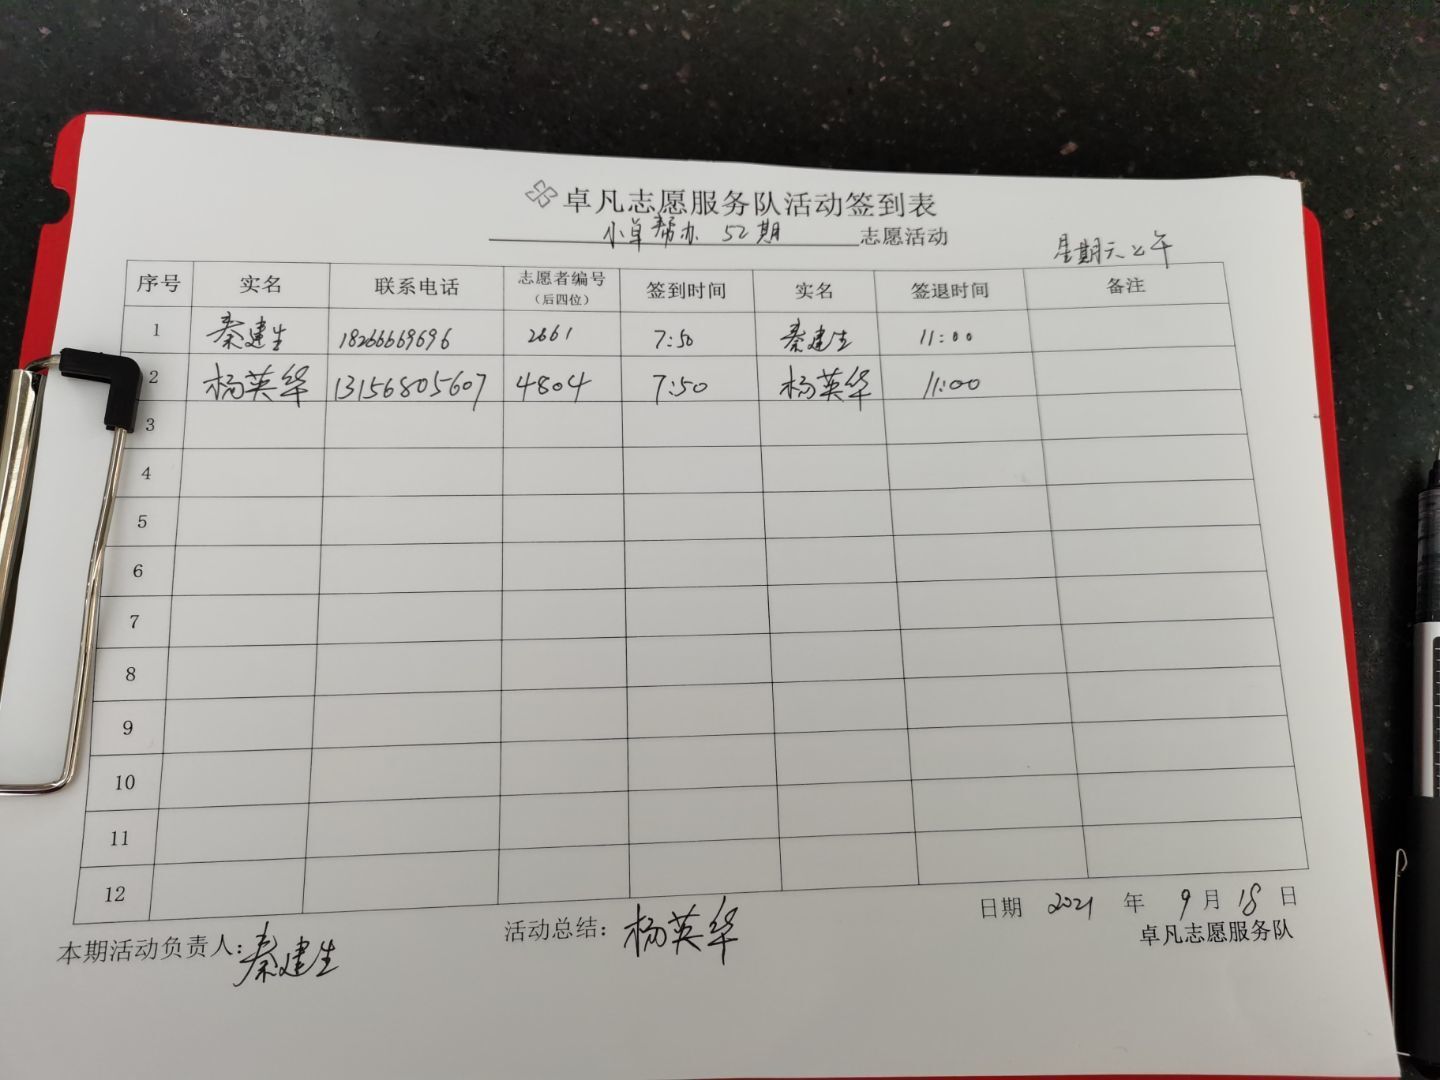 卓凡志愿服务队活动签到表
小卓帮办 52期 志愿活动
星期六上午
序号 实名 联系电话 志愿者编号（后四位） 签到时间 实名 签退时间 备注
1 秦建生 18266669696 2661 7:50 秦建生 11:00
2 杨英华 13156805607 4804 7:50 杨英华 11:00
3
4
5
6
7
8
9
10
11
12
日期 2021 年 9 月 18 日
本期活动负责人: 秦建生 活动总结: 杨英华
卓凡志愿服务队